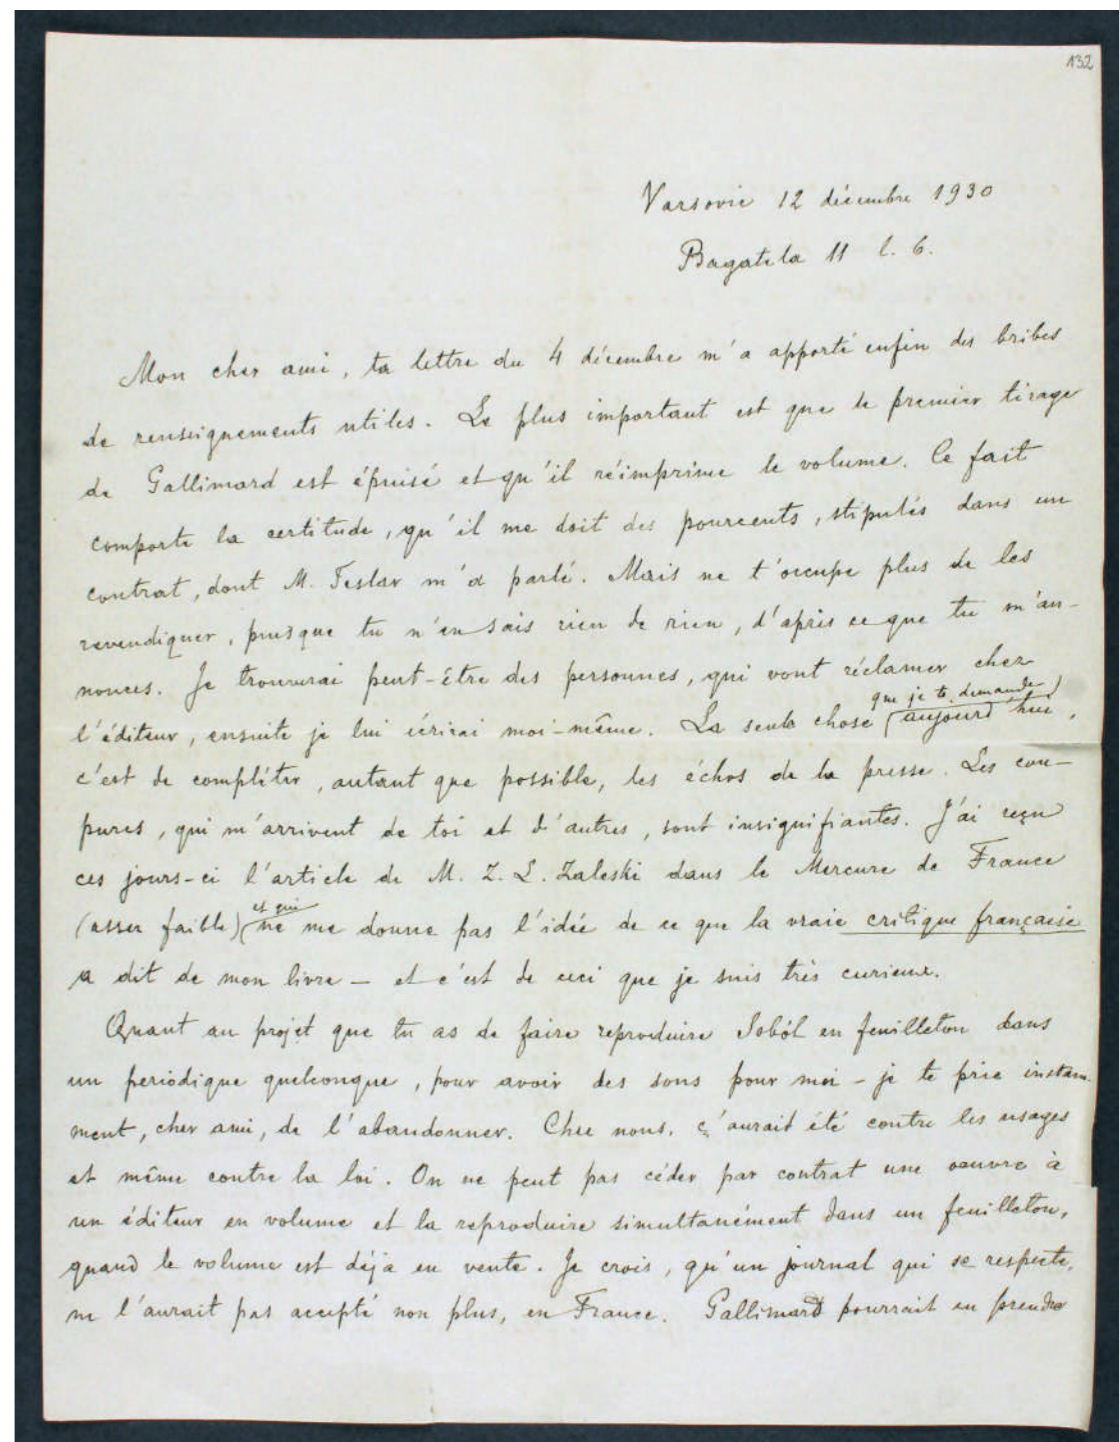 132
Varsovie 12 décembre 1930
Bagatela 11 l. 6.
Mon cher ami, ta lettre du 4 décembre m'a apporté enfin des bribes
de renseignements utiles. Le plus important est que le premier tirage
de Gallimard est épuisé et qu'il réimprime le volume. Ce fait
comporte la certitude, qu'il me doit des pourcents, stipulés dans un
contrat, dont M. Teslar m'a parlé. Mais ne t'occupe plus de les
revendiquer, puisque tu n'en sais rien de rien, d'après ce que tu m'an-
nonces. Je trouverai peut-être des personnes, qui vont réclamer chez
l'éditeur, ensuite je lui écrirai moi-même. La seule chose que je te demande aujourd'hui,
c'est de compléter, autant que possible, les échos de la presse. Les cou-
pures, qui m'arrivent de toi et d'autres, sont insignifiantes. J'ai reçu
ces jours-ci l'article de M. Z. L. Zaleski dans le Mercure de France
(assez faible) et qui ne me donne pas l'idée de ce que la vraie critique française
a dit de mon livre — et c'est de ceci que je suis très curieux.
Quant au projet que tu as de faire reproduire Soból en feuilleton dans
un periodique quelconque, pour avoir des sous pour moi - je te prie instam-
ment, cher ami, de l'abandonner. Chez nous, ç'aurait été contre les usages
et même contre la loi. On ne peut pas céder par contrat une oeuvre à
un éditeur en volume et la reproduire simultanément dans un feuilleton,
quand le volume est déja en vente. Je crois, qu'un journal qui se respecte,
ne l'aurait pas accepté non plus, en France. Gallimard pourrait en prendre